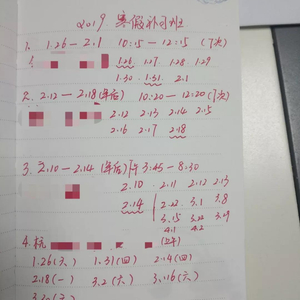 2019 寒假补习班
1. 1.26 — 2.1 10:15 — 12:15 (7次)
1.26 1.27 1.28 1.29
1.30 1.31 2.1
2. 2.12 — 2.18 (年后) 10:20 — 12:20 (7次)
2.12 2.13 2.14 2.15
2.16 2.17 2.18
3. 2.10 — 2.14 (年后) 3:45 — 8:30
2.10 2.11 2.12 2.13
2.14 2.22 3.1 3.8
3.15 3.22 3.29
4.1 4.2
4. 杭
1.26 (六) 1.31 (四) 2.14 (四)
2.18 (一) 3.2 (六) 3.16 (六)
3.30 (六)